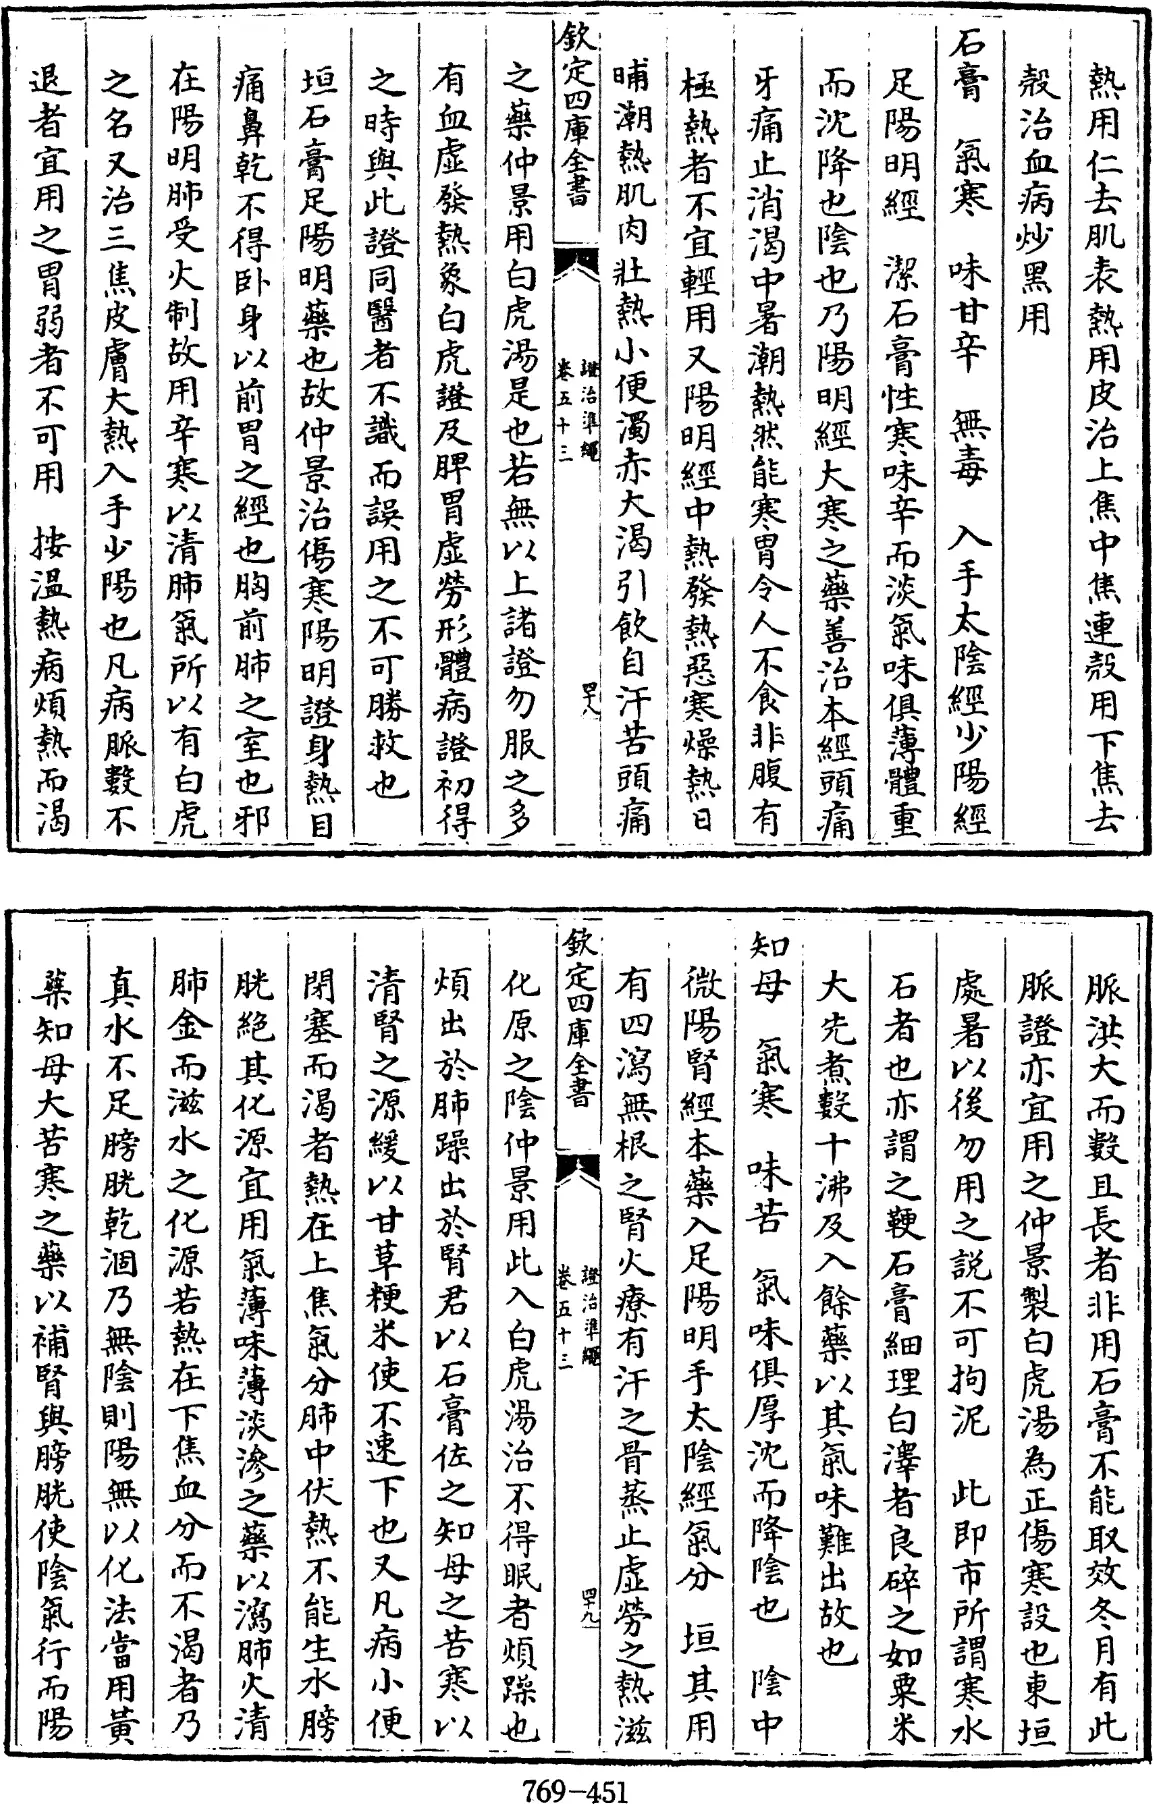 熱用仁去肌表熱用皮治上焦中焦連殼用下焦去
殼治血病炒黑用
石膏　氣寒　味甘辛　無毒　入手太陰經少陽經
足陽明經　潔石膏性寒味辛而淡氣味俱薄體重
而沈降也陰也乃陽明經大寒之藥善治本經頭痛
牙痛止消渴中暑潮熱然能寒胃令人不食非腹有
極熱者不宜輕用又陽明經中熱發熱惡寒燥熱日
晡潮熱肌肉壯熱小便濁赤大渴引飲自汗苦頭痛
欽定四庫全書
證治準繩
卷五十三
四十八
之藥仲景用白虎湯是也若無以上諸證勿服之多
有血虛發熱象白虎證及脾胃虛勞形體病證初得
之時與此證同醫者不識而誤用之不可勝救也
垣石膏足陽明藥也故仲景治傷寒陽明證身熱目
痛鼻乾不得卧身以前胃之經也胸前肺之室也邪
在陽明肺受火制故用辛寒以清肺氣所以有白虎
之名又治三焦皮膚大熱入手少陽也凡病脈數不
退者宜用之胃弱者不可用　按温熱病煩熱而渴
脈洪大而數且長者非用石膏不能取效冬月有此
脈證亦宜用之仲景製白虎湯為正傷寒設也東垣
處暑以後勿用之説不可拘泥　此即市所謂寒水
石者也亦謂之鞕石膏細理白澤者良碎之如粟米
大先煮數十沸及入餘藥以其氣味難出故也
知母　氣寒　味苦　氣味俱厚沈而降陰也　陰中
微陽腎經本藥入足陽明手太陰經氣分　垣其用
有四瀉無根之腎火療有汗之骨蒸止虛勞之熱滋
欽定四庫全書
證治準繩
卷五十三
四十九
化原之陰仲景用此入白虎湯治不得眠者煩躁也
煩出於肺躁出於腎君以石膏佐之知母之苦寒以
清腎之源緩以甘草粳米使不速下也又凡病小便
閉塞而渴者熱在上焦氣分肺中伏熱不能生水膀
胱絶其化源宜用氣薄味薄淡滲之藥以瀉肺火清
肺金而滋水之化源若熱在下焦血分而不渴者乃
真水不足膀胱乾涸乃無陰則陽無以化法當用黃
蘗知母大苦寒之藥以補腎與膀胱使陰氣行而陽
769-451